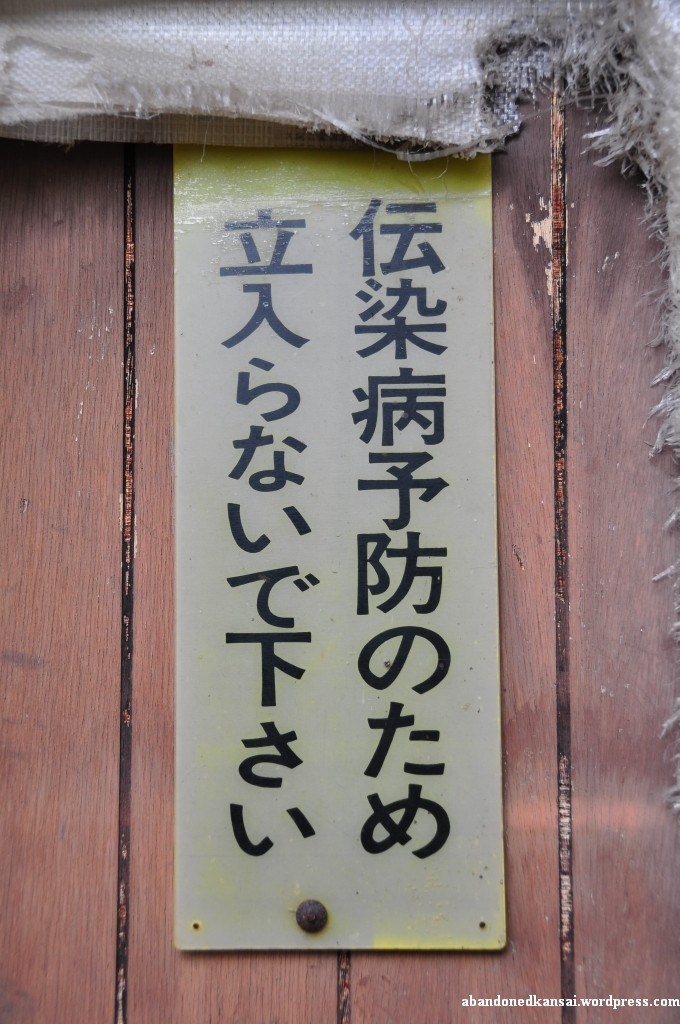 伝染病予防のため
立入らないで下さい
abandonedkansai.wordpress.com